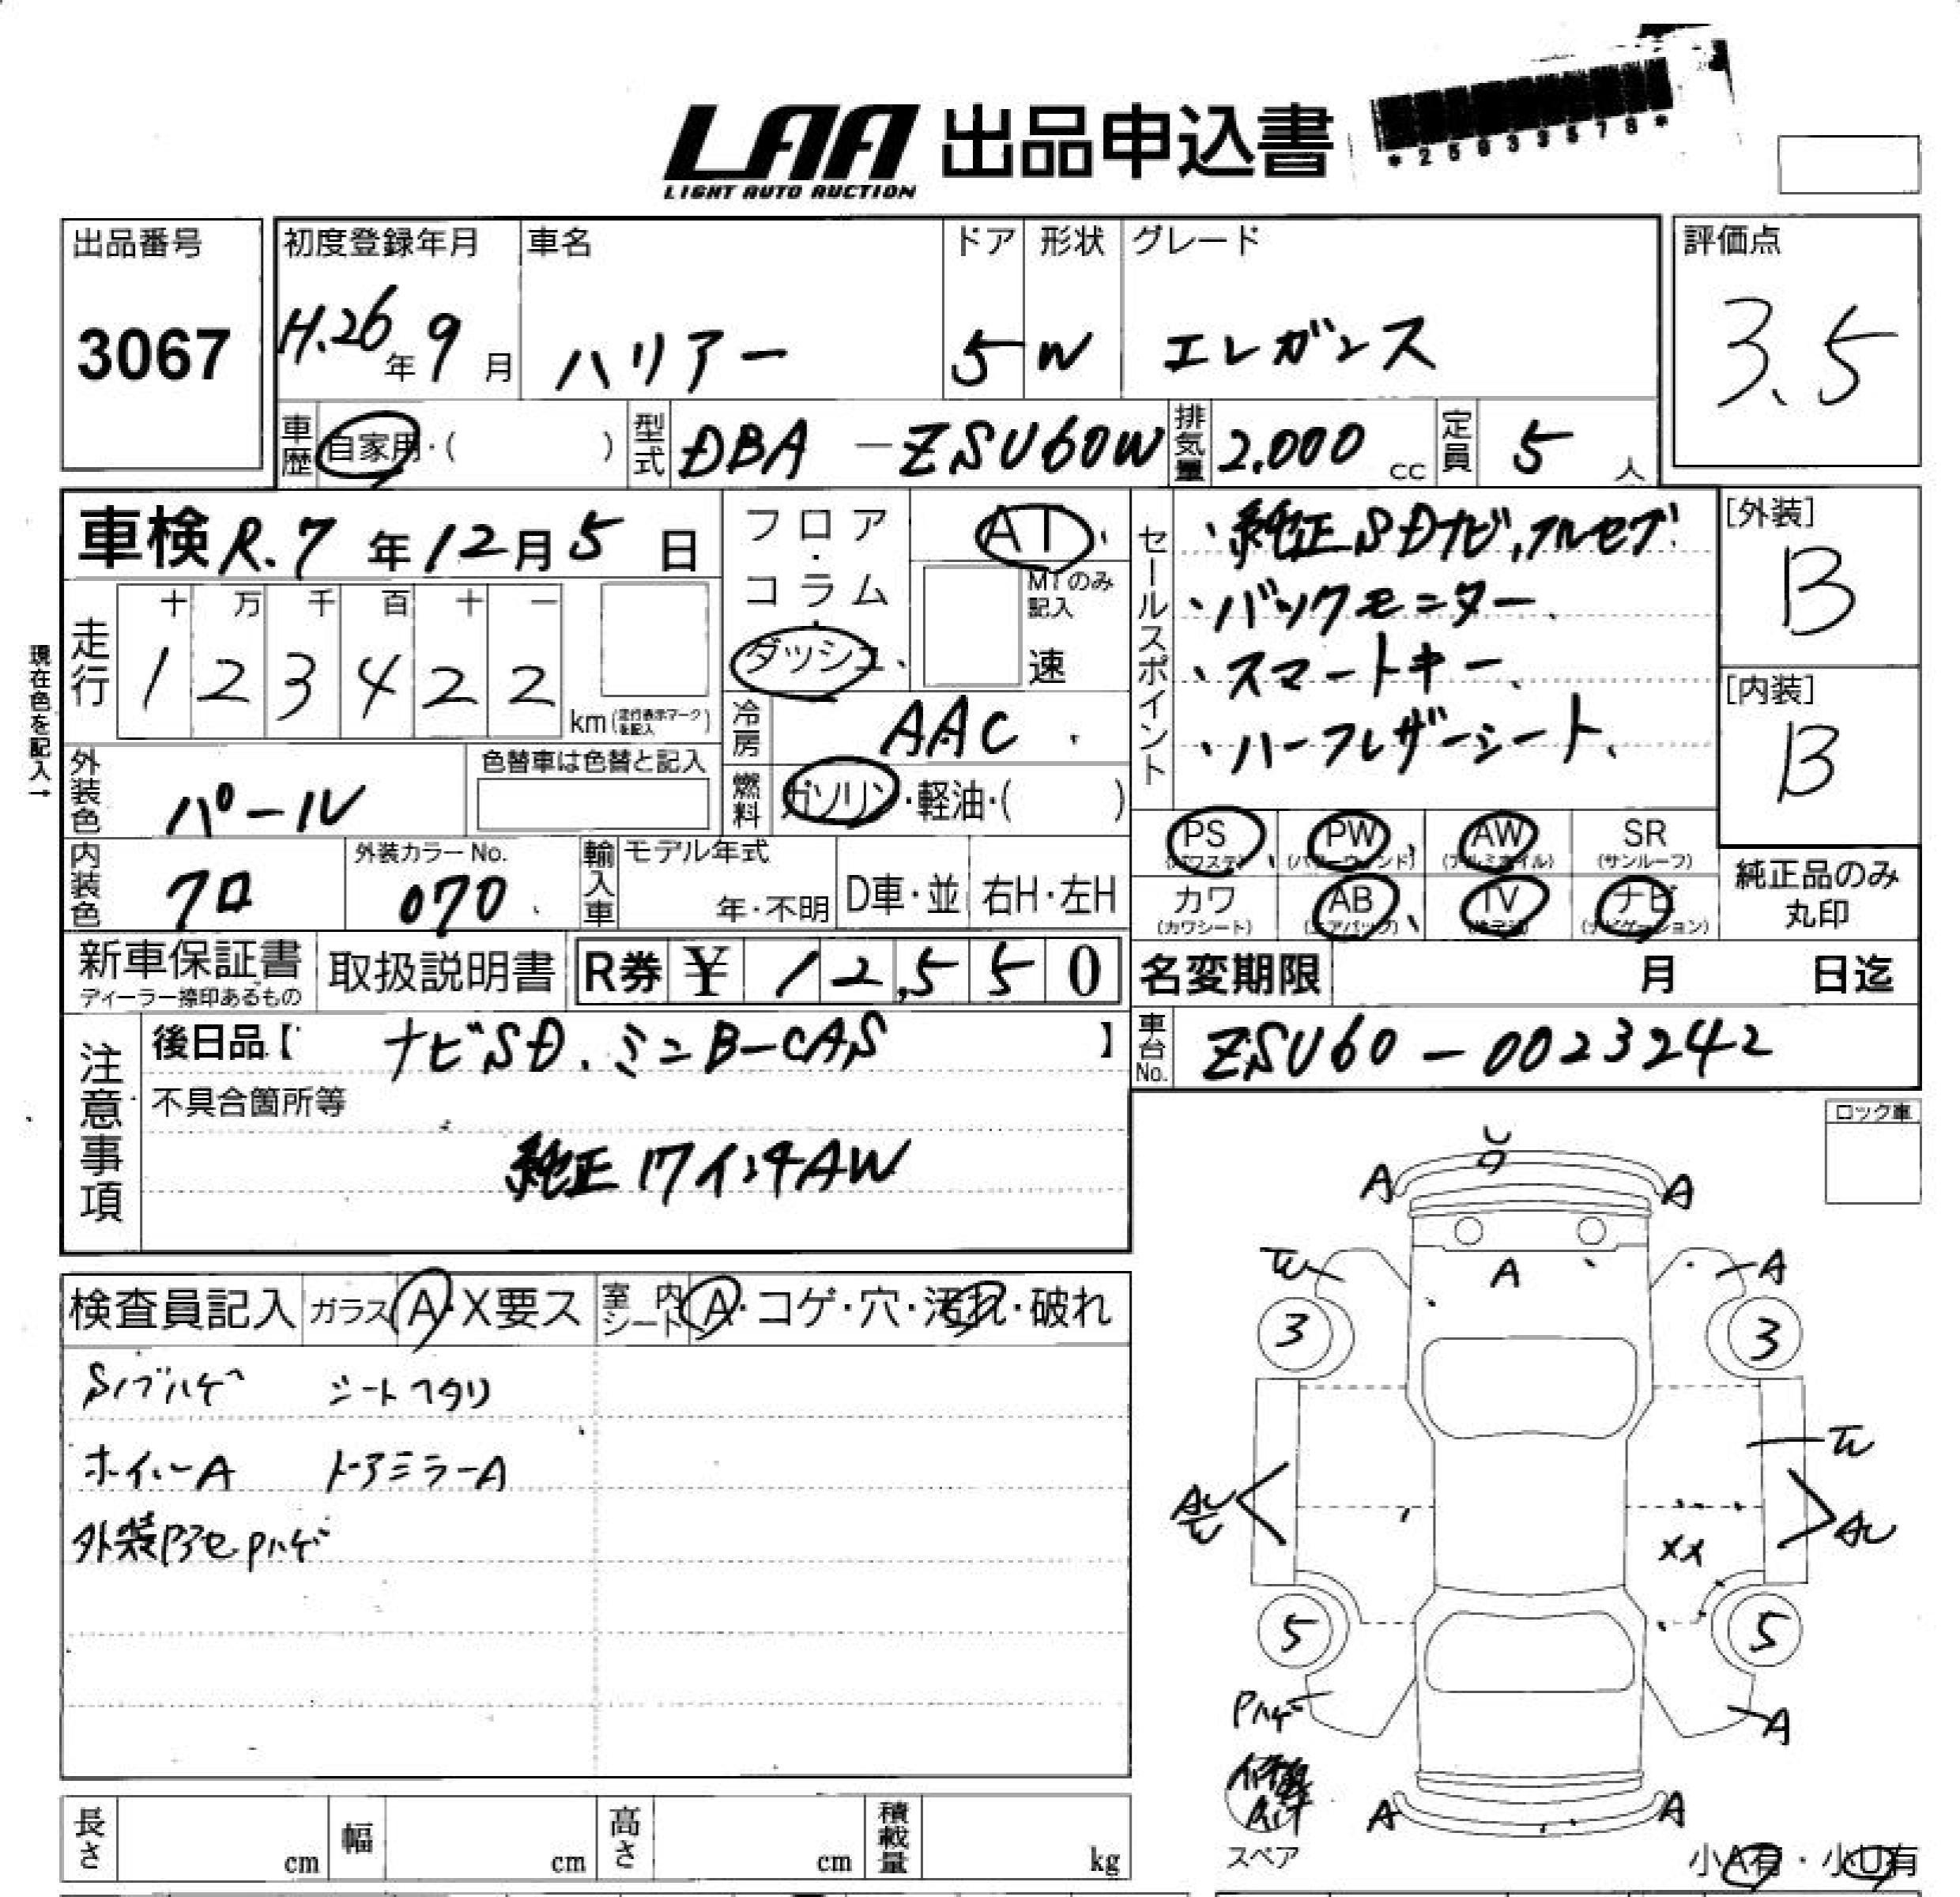 LAA 出品申込書
LIGHT AUTO AUCTION
*25033578*
出品番号
3067
初度登録年月
H.26年9月
車名
ハリアー
ドア
5
形状
W
グレード
エレガンス
評価点
3.5
車歴
自家用・( )
型式
DBA-ZSU60W
排気量
2.000 cc
定員
5人
車検 R.7年12月5日
フロア・コラム・ダッシュ
AT
MTのみ記入
速
セールスポイント
・純正SDナビ,フルセグ.
・バックモニター.
・スマートキー.
・ハーフレザーシート.
[外装]
B
[内装]
B
現在色を記入→
走行
十万千百十一
123422
km(走行表示マークを記入)
冷房
AAC
外装色
パール
色替車は色替と記入
燃料
ガソリン・軽油・( )
PS
(パワステ)
PW
(パワーウィンド)
AW
(アルミホイル)
SR
(サンルーフ)
カワ
(カワシート)
AB
(エアバック)
TV
ナビ
(ナビゲーション)
純正品のみ
丸印
内装色
クロ
外装カラーNo.
070
輸入車
モデル年式
年・不明
D車・並
右H・左H
新車保証書
ディーラー捺印あるもの
取扱説明書
R券 ¥ 12,550
名変期限 月 日迄
注意事項
後日品【 ナビSD.ミニB-CAS 】
車台No.
ZSU60-0023242
不具合箇所等
純正17インチAW
ロック車
検査員記入
ガラス A・X要ス
室内シート A・コゲ・穴・汚れ・破れ
Sノブハゲ シートヘタリ
ホイールA ドアミラーA
外装アセPハゲ
A
A
A
A
3
3
AU
XX
5
5
Pハゲ
A
修理
スペア
A
A
小A有・小U有
長さ cm
幅 cm
高さ cm
積載量 kg